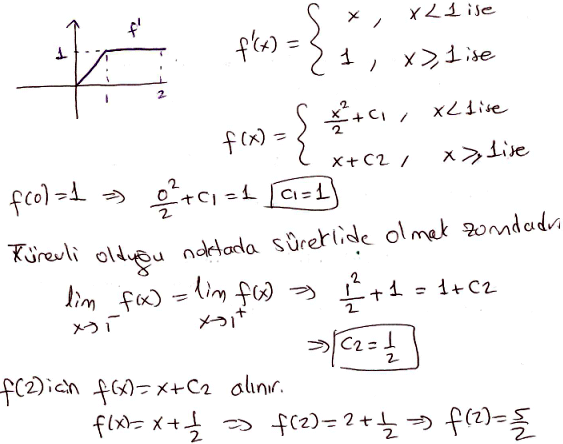 f'
1
1 2
f'(x) = { x , x<1 ise
1 , x≥1 ise
f(x) = { x²/2 + c1 , x<1 ise
x+c2 , x≥1 ise
f(0)=1 ⇒ 0²/2 + c1 = 1 c1=1
Türevli olduğu noktada sürekli de olmak zorundadır.
lim x→1⁻ f(x) = lim x→1⁺ f(x) ⇒ 1²/2 + 1 = 1+c2
⇒ c2 = 1/2
f(2) için f(x)= x+c2 alınır.
f(x)= x + 1/2 ⇒ f(2)= 2 + 1/2 ⇒ f(2)= 5/2